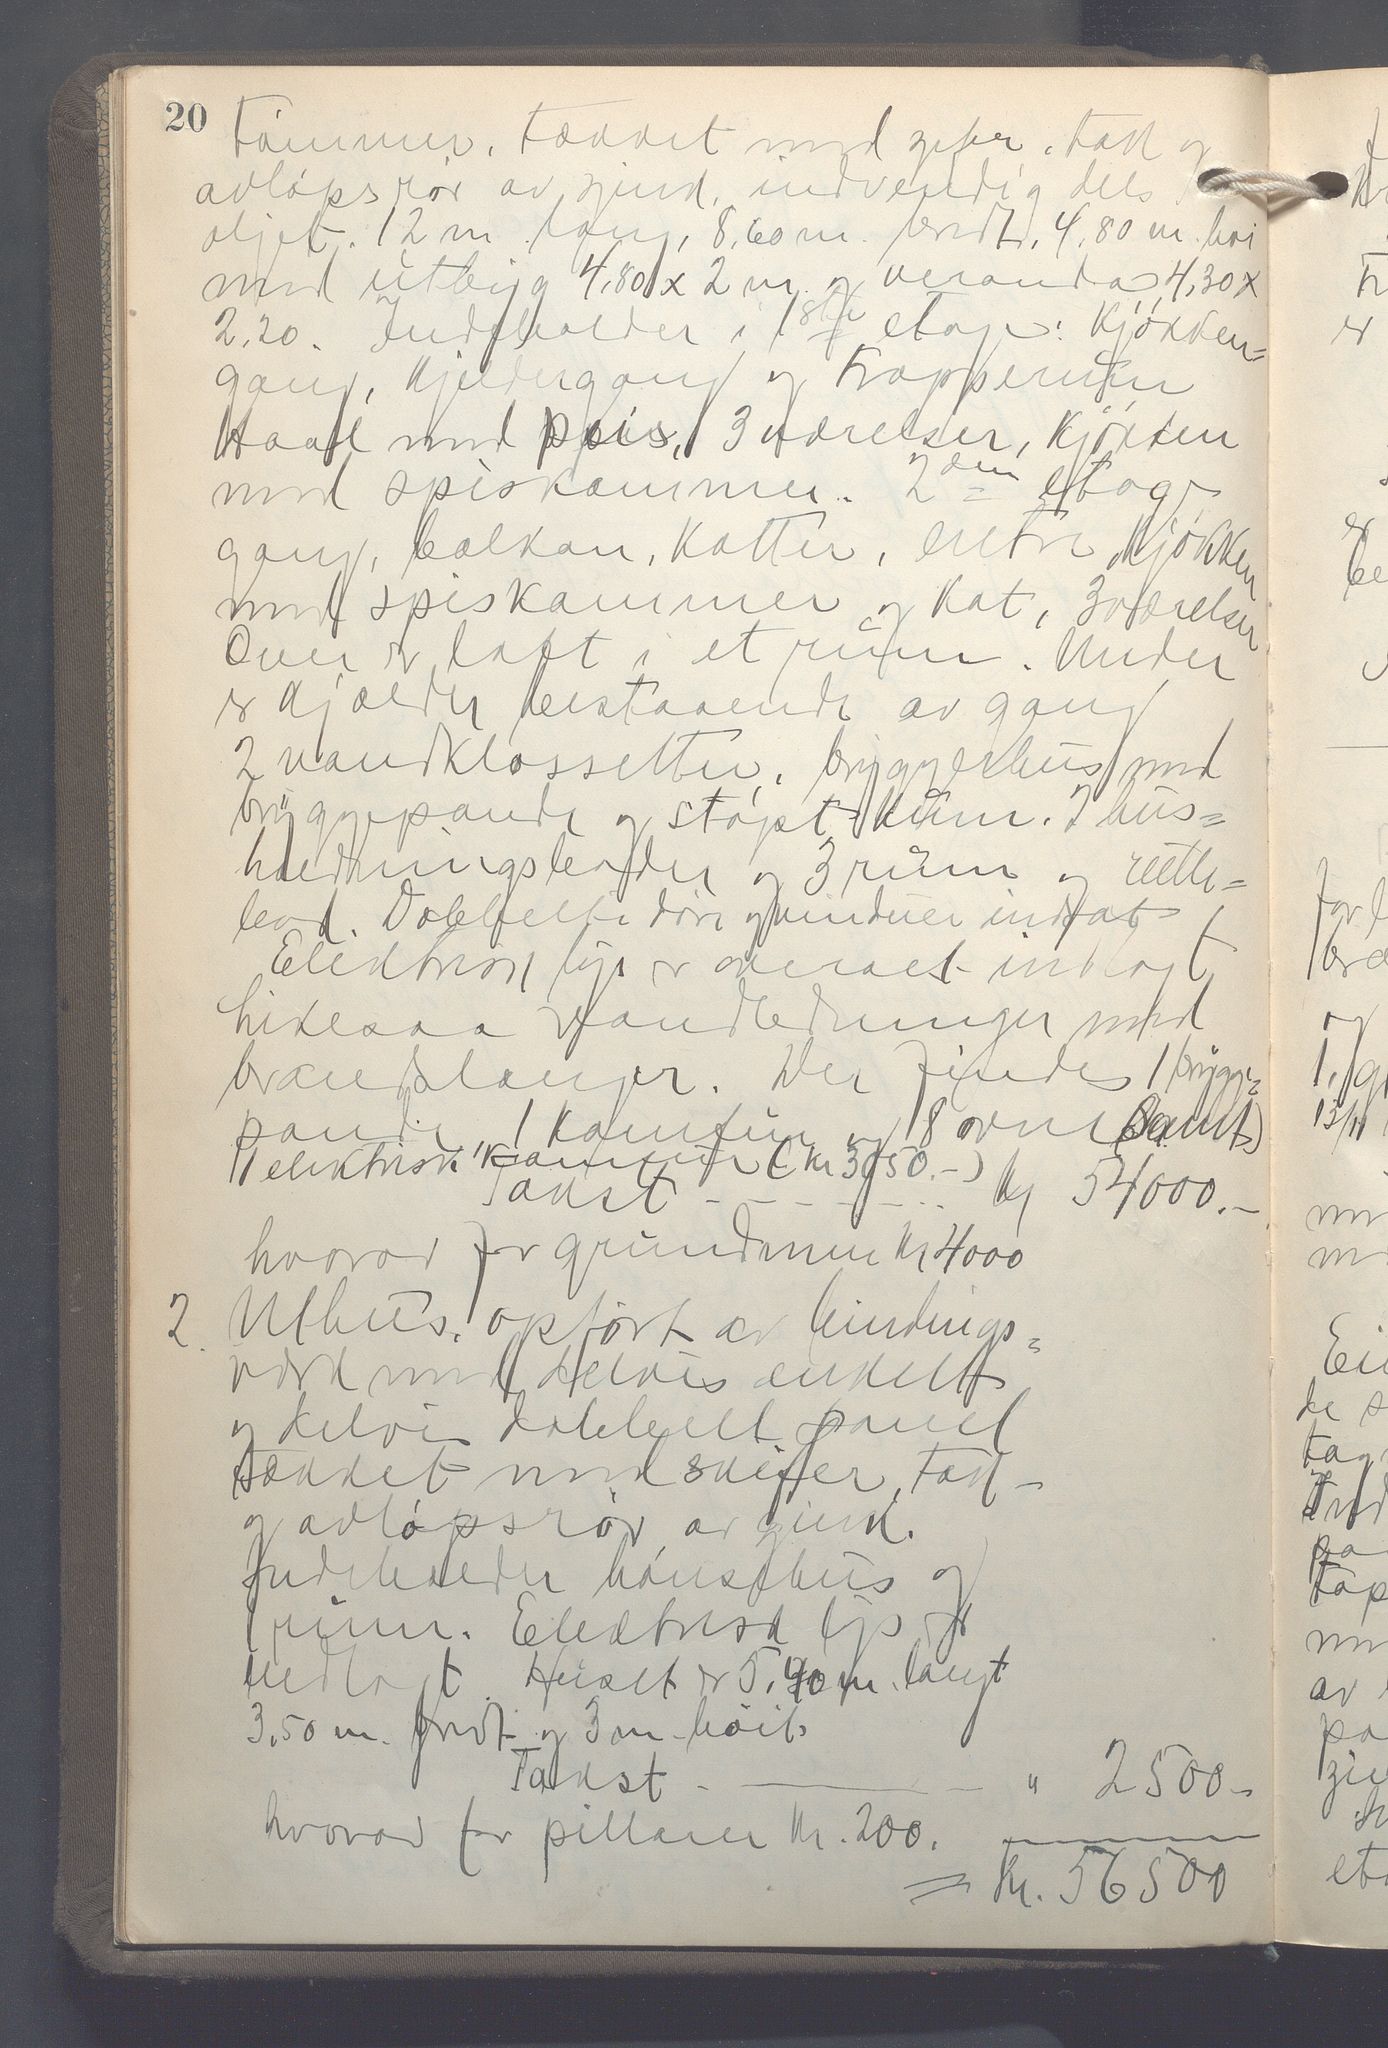 20
tømmer, tækket med skifer, tak og
avløpsrør av zink, indvendig dels
oljet. 12 m. lang, 8,60 m. bredt, 4,80 m. høi
med utbyg 4,80 x 2 m og veranda 4,30 x
2,20. Indeholder i 1ste etage: Kjøkken=
gang, kjeldergang og trapperum
Hall med peis, 3 værelser, kjøkken
med spiskammer. 2den etage
gang, balkon, Kotter, entre, Kjøkken
med spiskammer og Kot, 3 værelser
Over er loft i et rum. Under
er kjælder bestaaende av gang
2 vandklossetter, bryggerhus med
bryggepande og støpt kum. 2 hus=
holdningsboder og 3 rum og
bod. Dobbelte døre og vinduer indsat
Elektrisk lys er overalt indlagt
likesaa vandledninger med
brandslanger. Der findes 1 brygge=
pande, 1 Komfur og 8 ovne (samt)
1 elektrisk Komfur (Kr 3650.-)
Takst - - - - - - Kr 54000.-
hvorav for grundmur Kr 4000
2. Uthus, opført av bindings=
verk med delvis enkelt
og delvis dobbelt panel
tækket med skifer, tak-
og avløpsrør av zink.
Indeholder hønsehus og
1 rum. Elektrisk lys er
indlagt. Huset er 5,40 m. langt
3,50 m. bredt og 3 m. høit
Takst - - " 2500.-
hvorav for pillarer Kr. 200.
= Kr. 56500